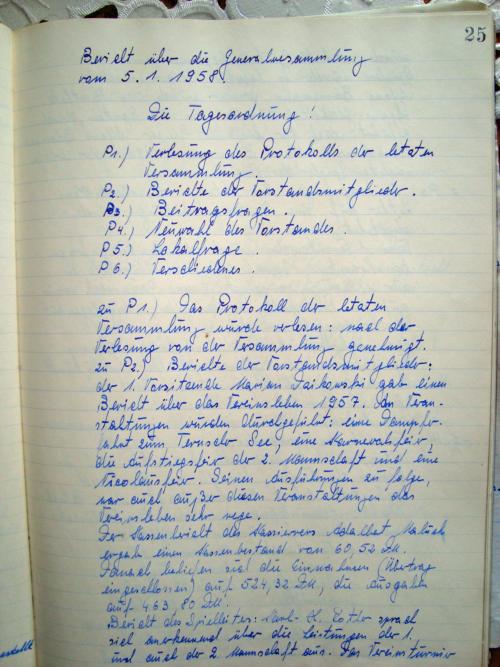 25
Bericht über die Generalversammlung
vom 5.1.1958.
Die Tagesordnung!
P1.) Verlesung des Protokolls der letzten
Versammlung.
P2.) Berichte der Vorstandsmitglieder.
P3.) Beitragsfragen.
P4.) Neuwahl des Vorstandes.
P5.) Lokalfrage.
P6.) Verschiedenes.
zu P1.) Das Protokoll der letzten
Versammlung wurde verlesen: nach der
Verlesung von der Versammlung genehmigt.
zu P2.) Berichte der Vorstandsmitglieder:
der 1. Vorsitzende Marian gab einen
Bericht über das Vereinsleben 1957. An Veran-
staltungen wurden durchgeführt: eine Dampfer-
fahrt zum See, eine Karnevalsfeier,
die Aufstiegsfeier der 2. Mannschaft und eine
Nicolausfeier. Seinen Ausführungen zu folge,
war auch außer diesen Veranstaltungen das
Vereinsleben sehr rege.
Der Kassenbericht des Kassierers
ergab einen Kassenbestand von 60,52 DM.
Danach beliefen sich die Einnahmen (Überträge
eingeschlossen) auf 524,32 DM, die Ausgaben
auf 463,80 DM.
Bericht des Spielleiters: Karl-H. sprach
sich anerkennend über die Leistungen der 1.
und auch der 2. Mannschaft aus. Das Vereinsturnier